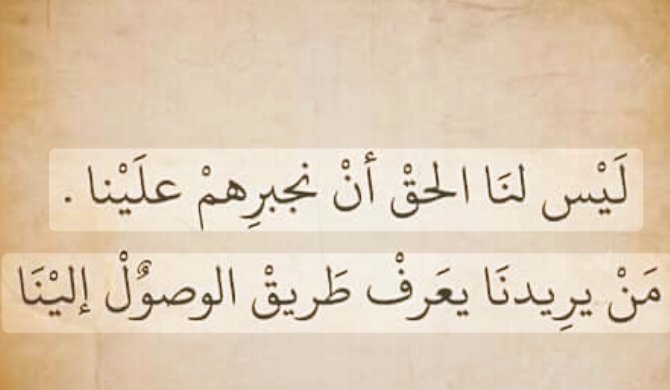 لَيْس لنَا الحقْ أنْ نجبرِهمْ علَيْنا .
مَنْ يرِيدنَا يعَرفْ طَريقْ الوصوٌلْ إليْنَا